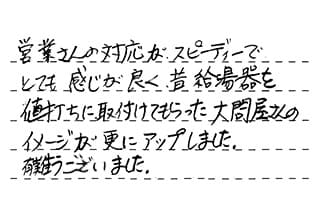 営業さんの対応が、スピーディーで
とても感じが良く、昔給湯器を
値打ちに取付けてもらった大問屋さんの
イメージが更にアップしました。
有難うございました。